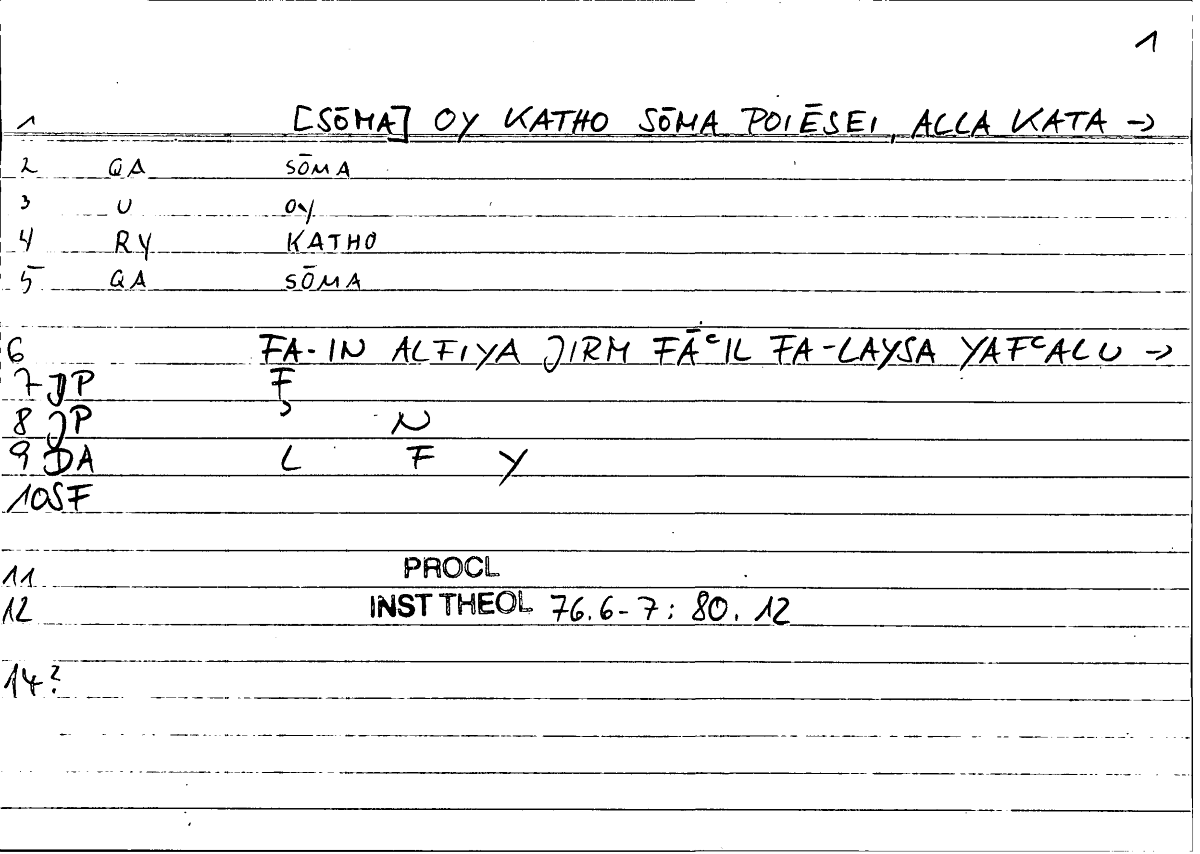 1
1 [SŌMA] OY KATHO SŌMA POIĒSEI, ALLA KATA →
2 QA SŌMA
3 U OY
4 RY KATHO
5 QA SŌMA
6 FA-IN ALFIYA JIRM FĀʿIL FA-LAYSA YAFʿALU →
7 JP F
8 JP ʾ N
9 DA L F Y
10 SF
11 PROCL
12 INST THEOL 76.6-7: 80.12
14 ?